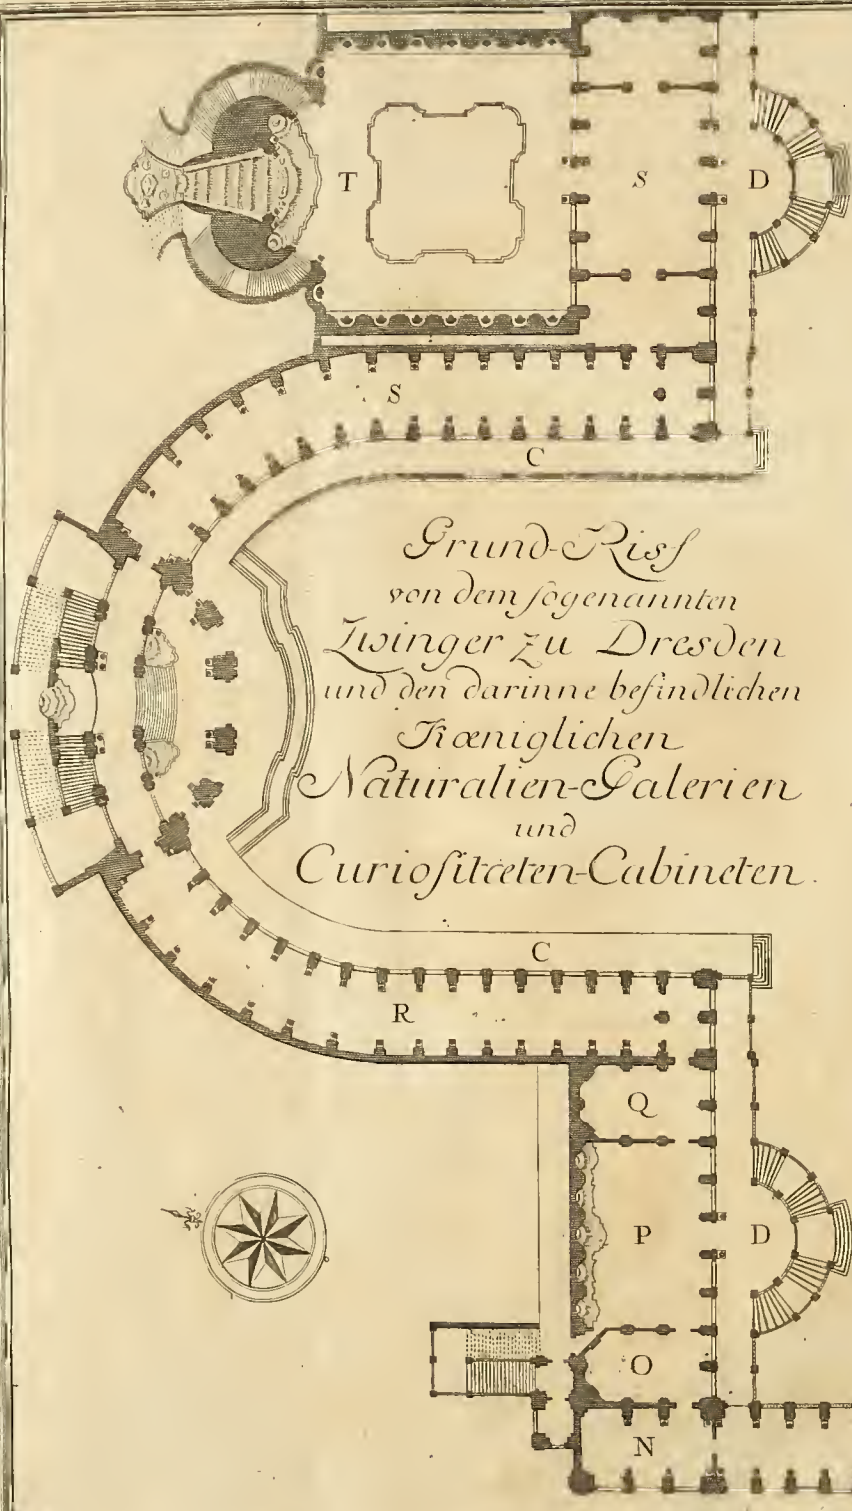 T
S
D
S
C
Grund-Riss
von dem sogenannten
Zwinger zu Dresden
und den darinne befindlichen
Kœniglichen
Naturalien-Galerien
und
Curiositæten-Cabineten.
C
R
Q
P
D
O
N